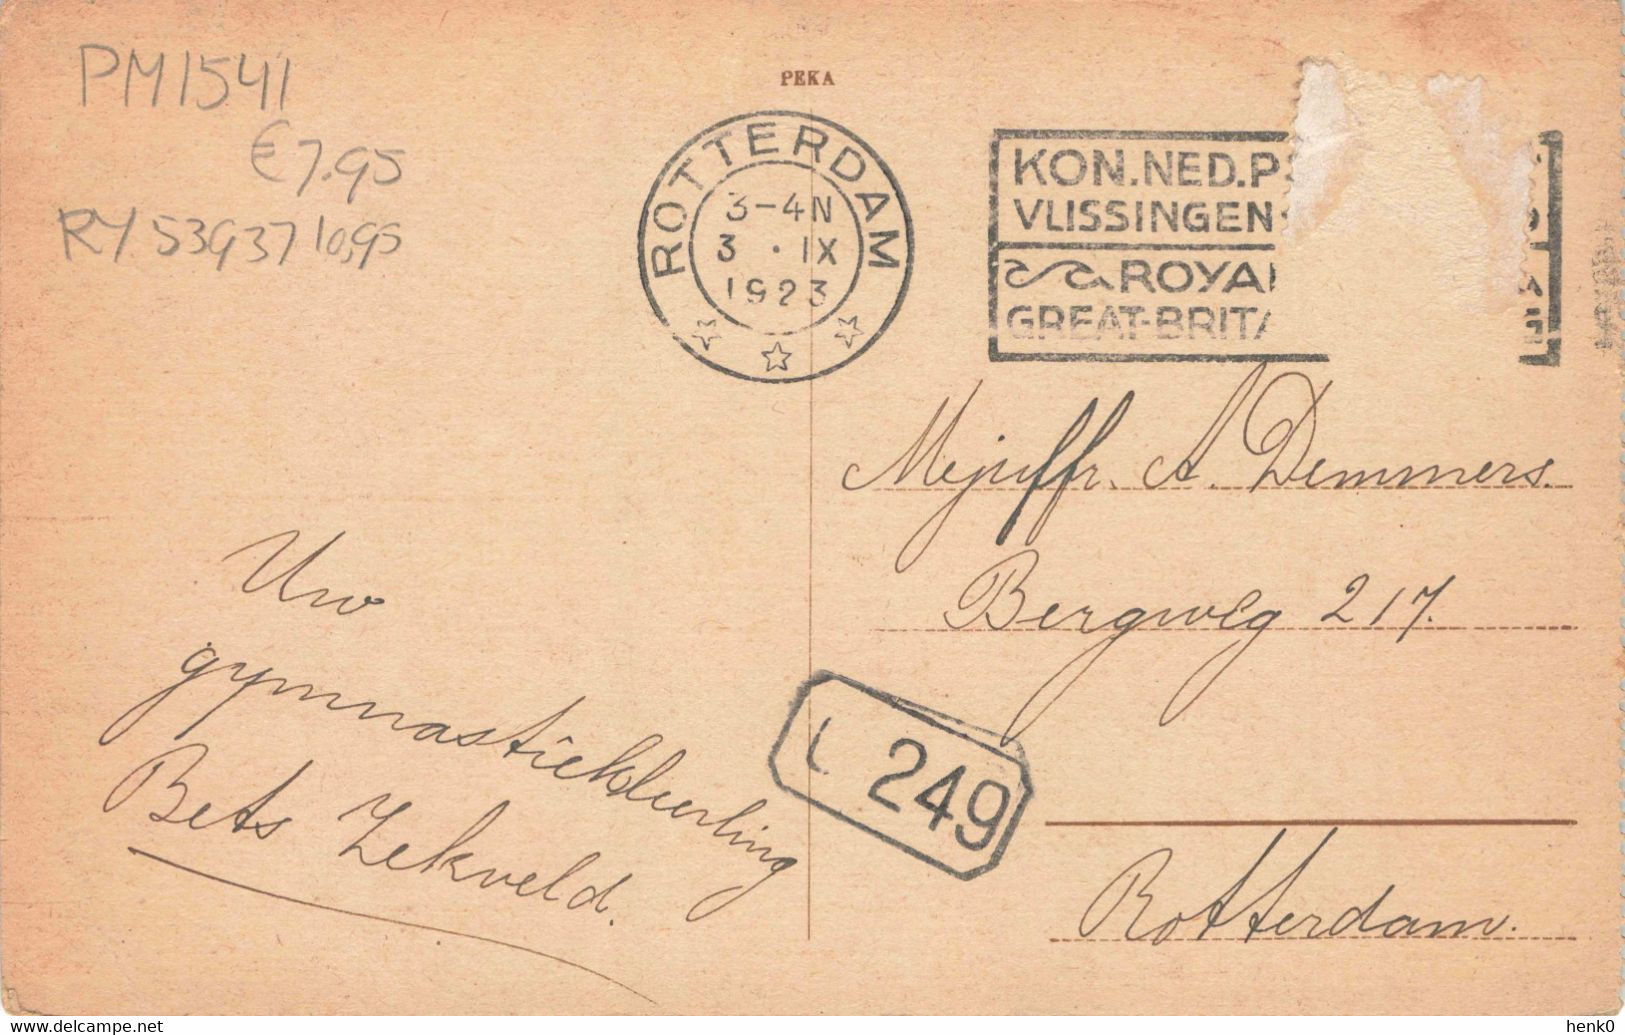 PM1541
€ 7.95
RY 53937 10,95
PEKA
ROTTERDAM
3-4N
3 . IX
1923
KON.NED.P
VLISSINGEN
ROYA
GREAT-BRITA
Mejuffr. A. Demmers.
Bergweg 217.
Rotterdam.
L 249
Uw
gymnastiekleerling
Bets Zekveld.
www.delcampe.net
henk0